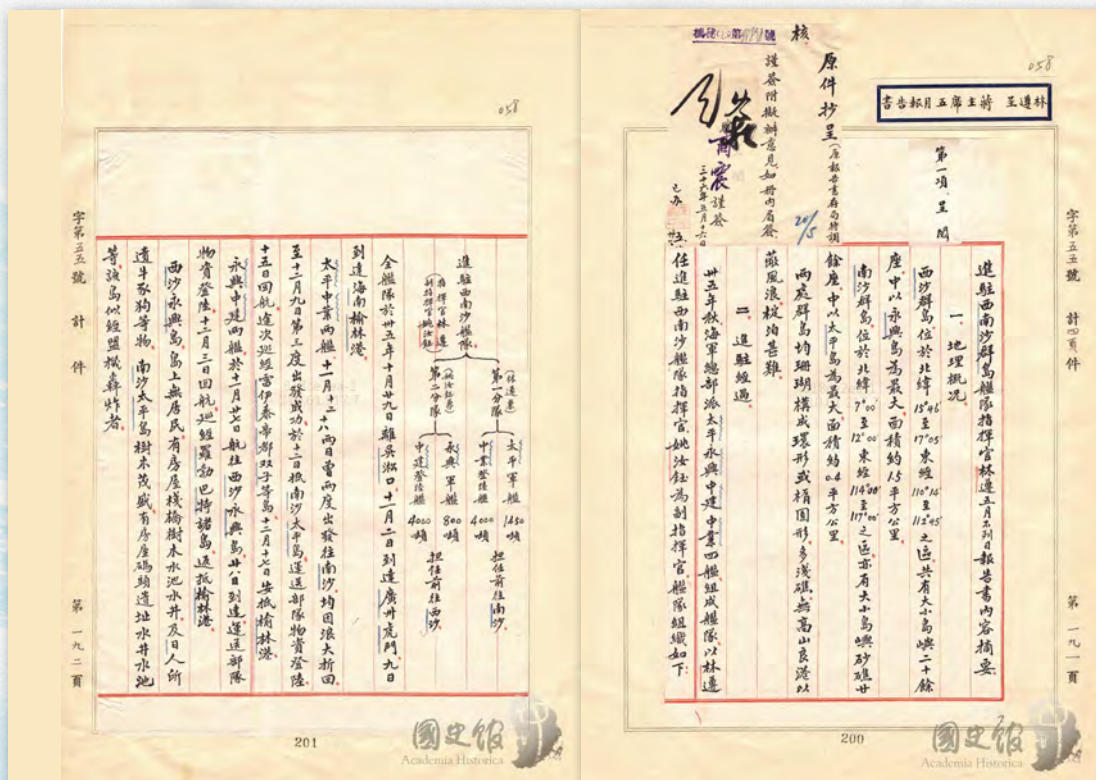 058
林遵呈 蔣主席五月報告書
字第五五號 計四頁件 第一九一頁
第一項 呈閱
核
原件抄呈(原報告書存局特調
謹簽附擬辦意見如冊內眉簽
商震謹簽
三十六年五月十六日
20/5
進駐西南沙群島艦隊指揮官林遵五月不列日報告書內容摘要
一、地理概況
西沙群島位於北緯15°46'至17°05'東經110°14'至112°45'之區共有大小島嶼二十餘
座中以永興島為最大面積約1.5平方公里
南沙群島位於北緯7°00'至12°00'東經114°00'至117°00'之區亦有大小島嶼砂礁廿
餘座中以太平島為最大面積約0.4平方公里
兩處群島均珊瑚構成環形或橢圓形多淺礁無高山良港以
蔽風浪碇泊甚難
二、進駐經過
卅五年秋海軍總部派太平永興中建中業四艦組成艦隊以林遵
任進駐西南沙艦隊指揮官姚汝鈺為副指揮官艦隊組織如下
200
國史館
Academia Historica
058
進駐西南沙艦隊
(指揮官林遵
副指揮官姚汝鈺)
第一分隊(林遵兼)
太平軍艦 1450噸
中業登陸艦 4000噸
担任前往南沙
第二分隊(姚汝鈺兼)
永興軍艦 800噸
中建登陸艦 4000噸
担任前往西沙
全艦隊於卅五年十月廿九日離吳淞口十一月二日到達廣州虎門九日
到達海南榆林港
太平中業兩艦十一月十二、十八兩日曾兩度出發往南沙均因浪大折回
至十二月九日第三度出發成功於十二日抵南沙太平島運送部隊物資登陸
十五日回航途次巡經雷伊泰帝都双子等島十二月十七日安抵榆林港
永興中建兩艦於十一月廿七日航往西沙永興島廿八日到達運送部隊
物資登陸十二月三日回航巡經羅勃巴特諸島返抵榆林港
西沙永興島島上無居民有房屋棧橋樹木水池水井及日人所
遺牛豕狗等物南沙太平島樹木茂盛有房屋碼頭遺址水井水池
等該島似經盟機轟炸者
字第五五號 計 件 第一九二頁
201
國史館
Academia Historica